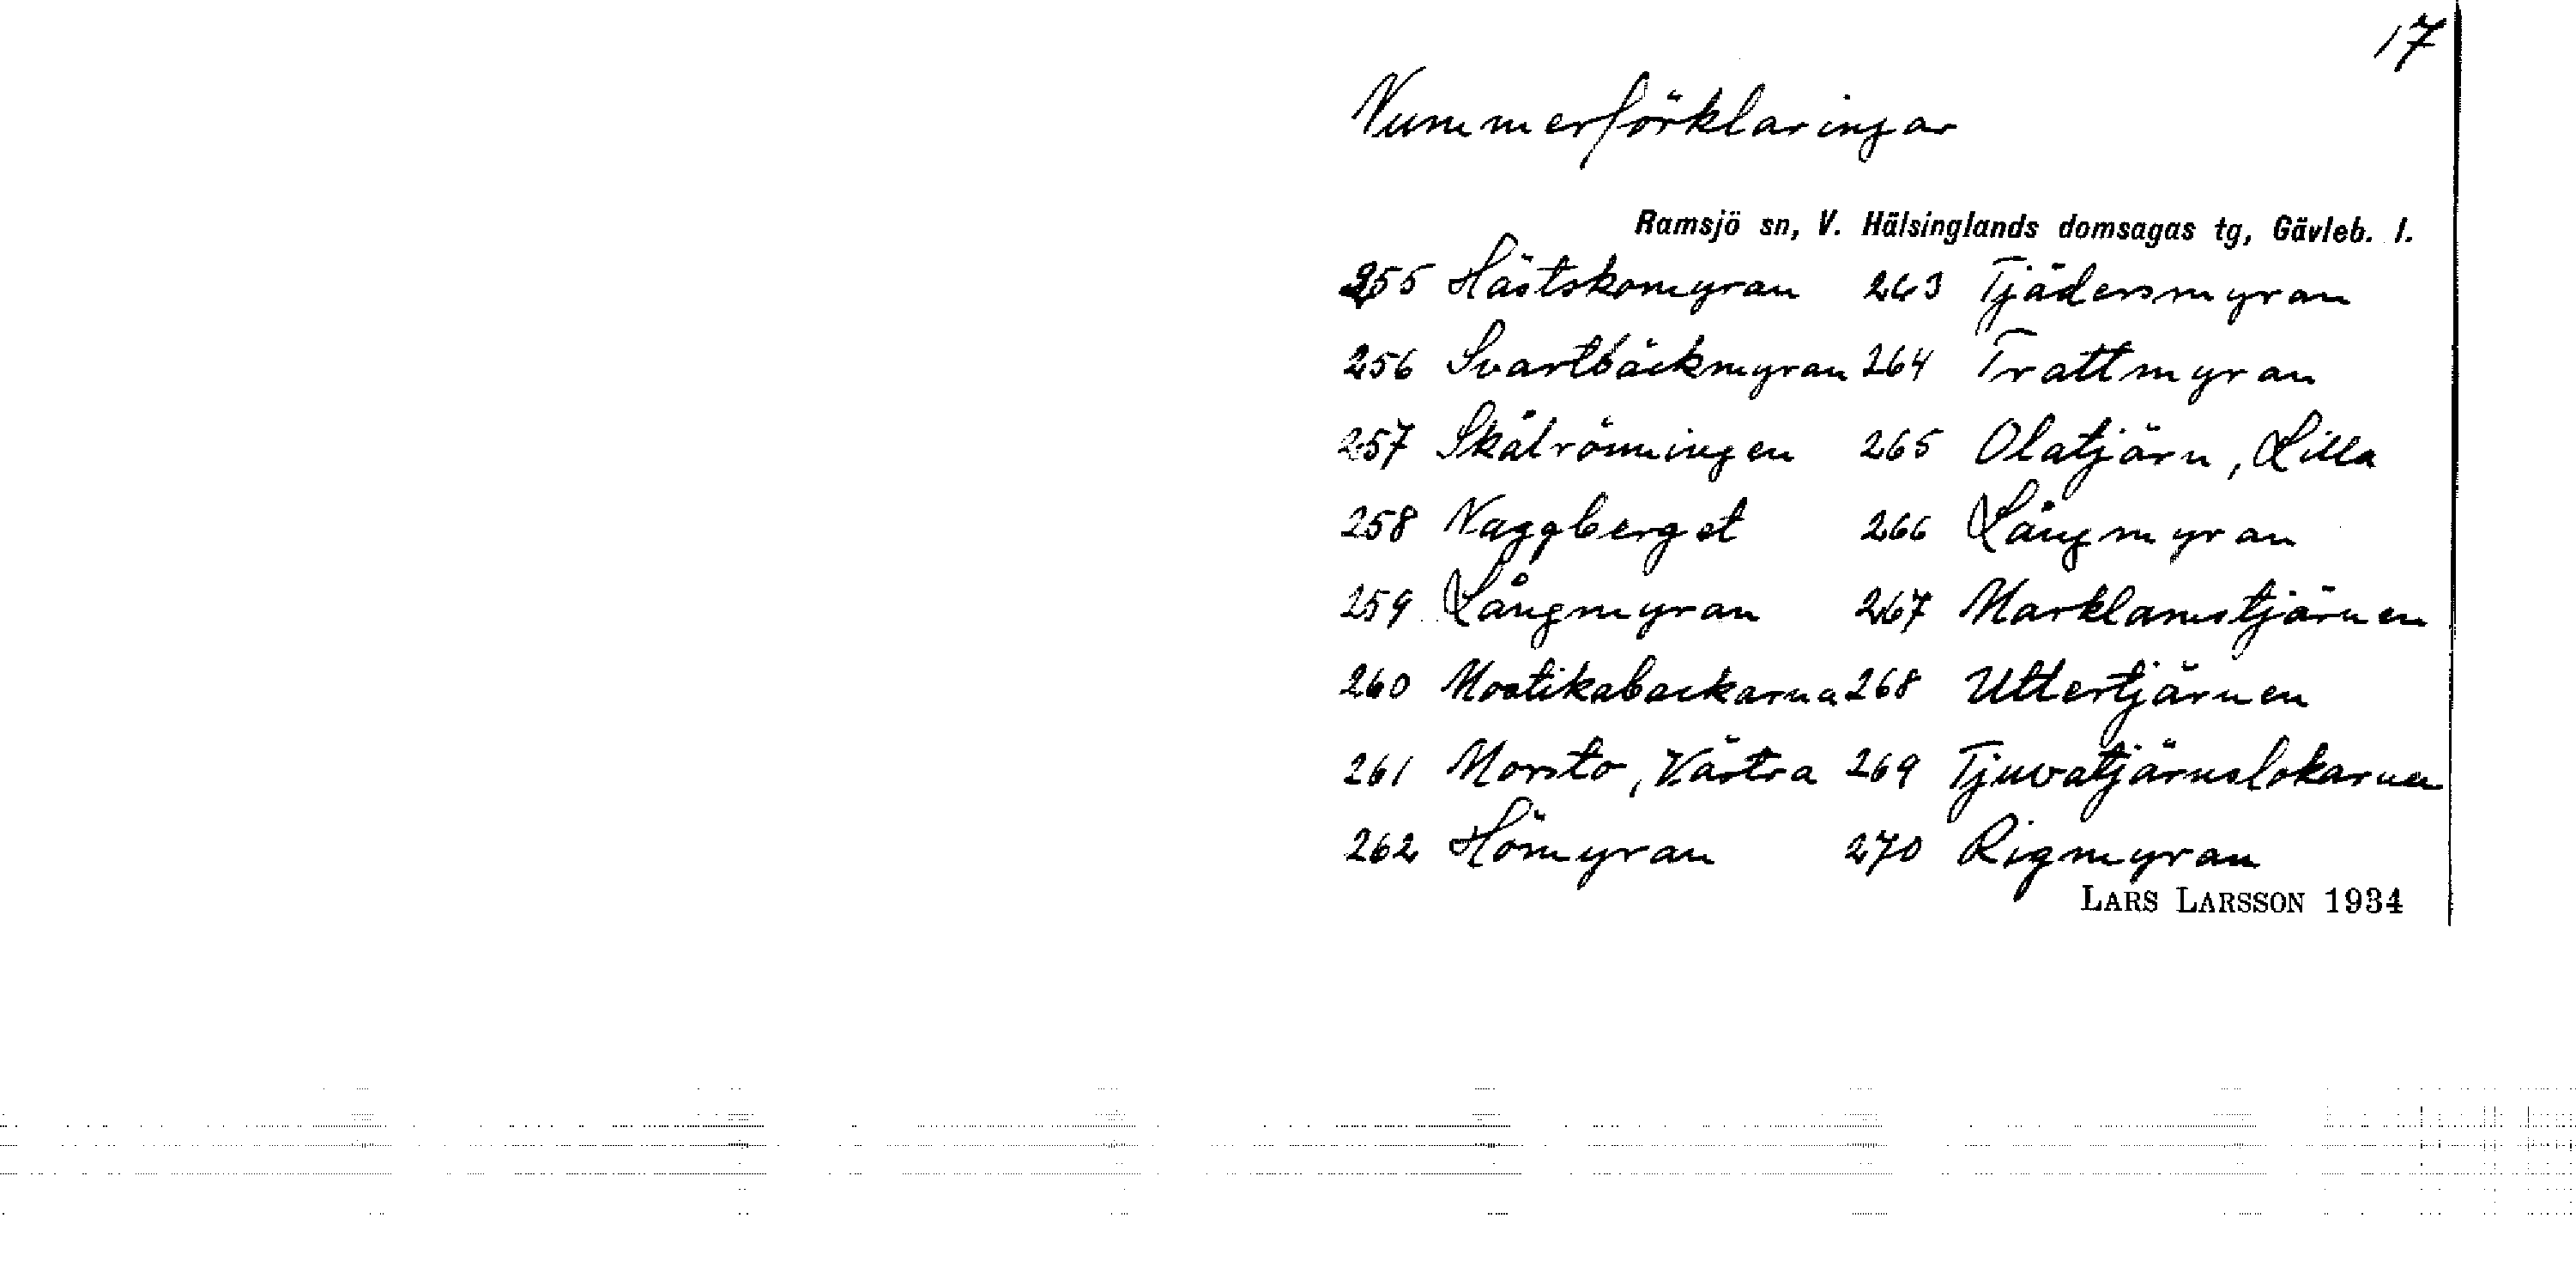 17
Nummerförklaringar
Ramsjö sn, V. Hälsinglands domsagas tg, Gävleb. l.
255 Hästskomyran 263 Tjädersmyran
256 Svartbäckmyran 264 Trattmyran
257 Skålrönningen 265 Olatjärn, Lilla
258 Naggberget 266 Långmyran
259 Långmyran 267 Marklamstjärnen
260 Mostikabackarna 268 Uttertjärnen
261 Morsto, Västra 269 Tjuvatjärnslokarna
262 Hömyran 270 Rigmyran
LARS LARSSON 1934